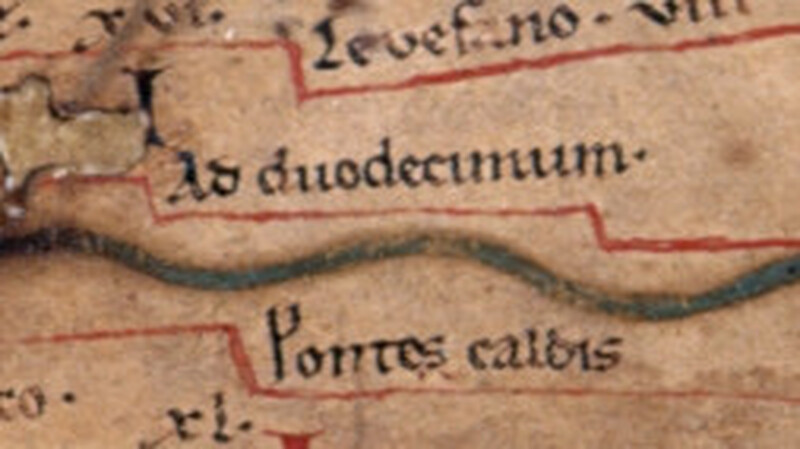 xvi.
Levefano. viii
Ad duodecimum.
Pontes caldis
co.
xl.